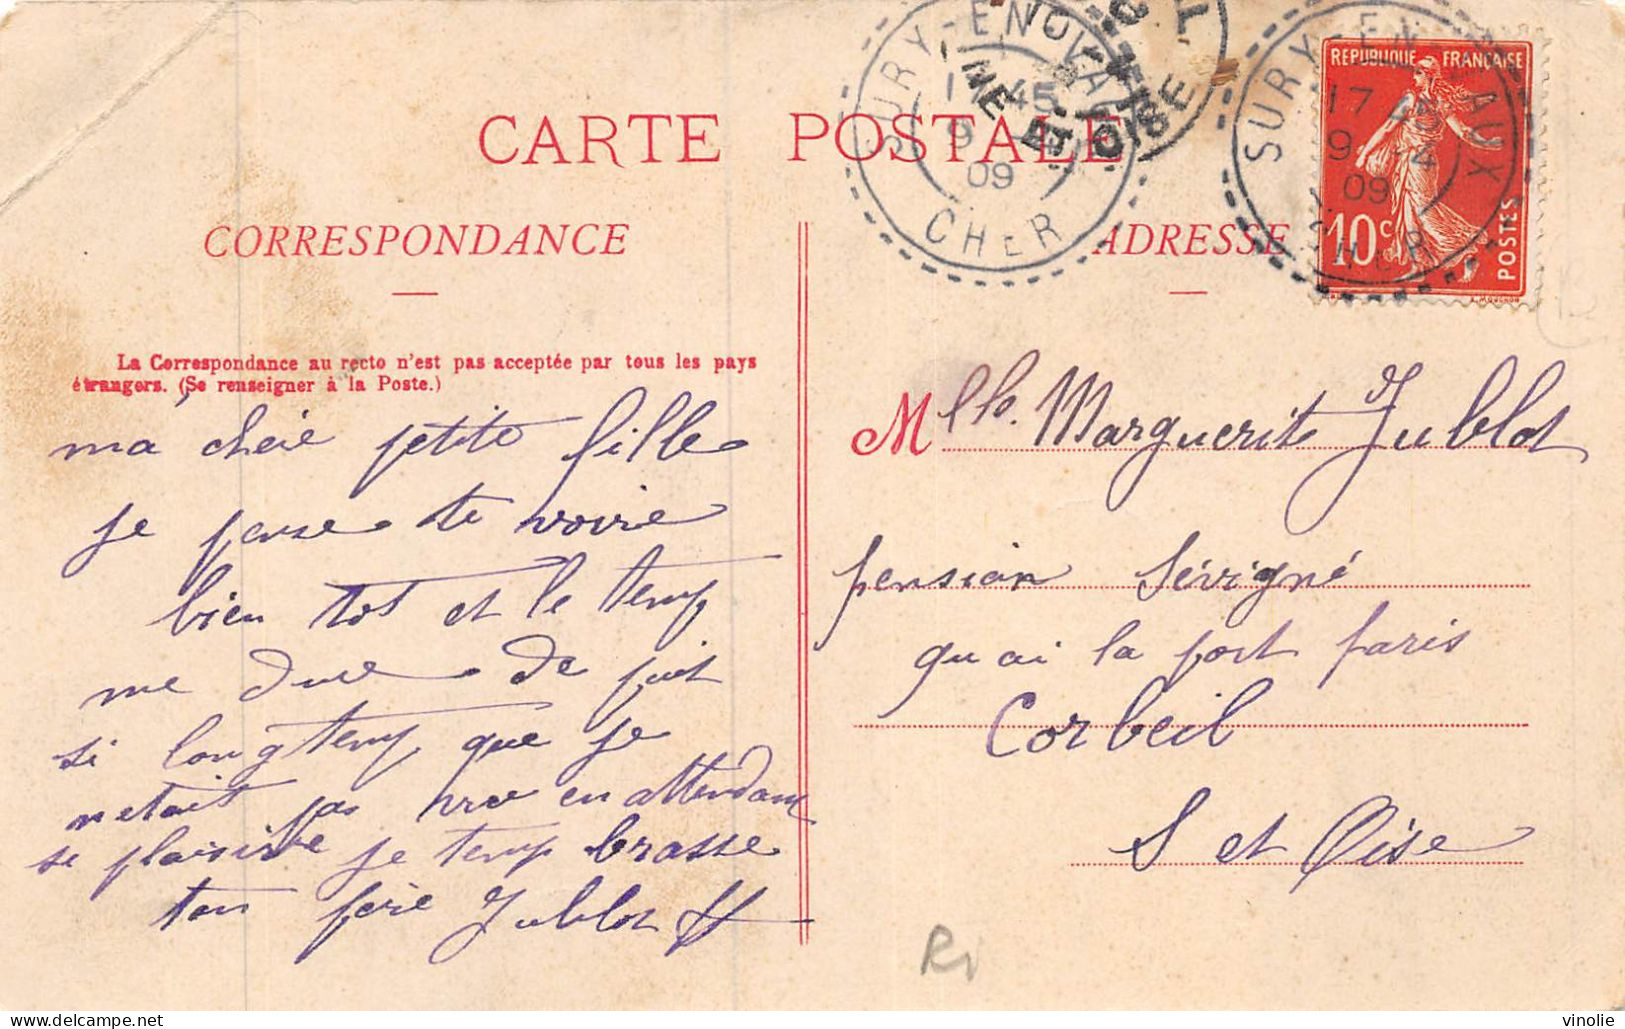 CARTE POSTALE
CORRESPONDANCE
La Correspondance au recto n'est pas acceptée par tous les pays
étrangers. (Se renseigner à la Poste.)
ma chéie petite fille
je pense te voire
bien tot et le temp
me dure de puit
si longtemp que je
netait pas vue en attendant
se plaisire je temp brasse
ton père Jublot
ADRESSE
Mlle. Marguerite Jublot
pension Sévigné
quai la port paris
Corbeil
S et Oise
SURY-EN-VAUX
17 45
9 4
09
CHER
SURY-EN-VAUX
17 45
9 4
09
CHER
OISE
REPUBLIQUE FRANÇAISE
10c
POSTES
E. MOUCHON
vinolie